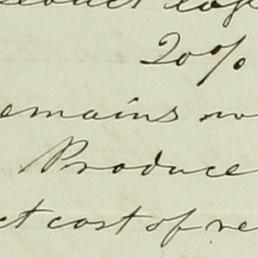 20%
emains
Produce
ct cost of re